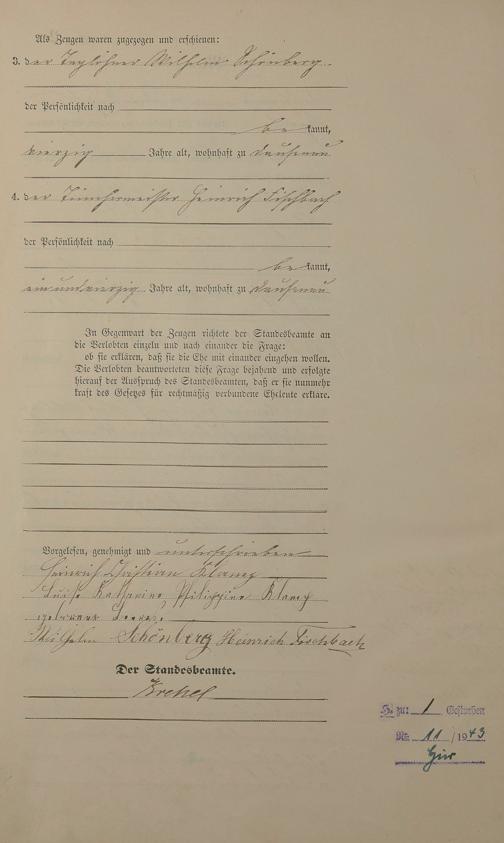 Als Zeugen waren zugezogen und erschienen:
3. der Taglöhner Wilhelm Schönberg
der Persönlichkeit nach
be kannt,
vierzig Jahre alt, wohnhaft zu Dausenau
4. der Tünchermeister Heinrich Fischbach
der Persönlichkeit nach
be kannt,
einundvierzig Jahre alt, wohnhaft zu Dausenau
In Gegenwart der Zeugen richtete der Standesbeamte an
die Verlobten einzeln und nach einander die Frage:
ob sie erklären, daß sie die Ehe mit einander eingehen wollen.
Die Verlobten beantworteten diese Frage bejahend und erfolgte
hierauf der Ausspruch des Standesbeamten, daß er sie nunmehr
kraft des Gesetzes für rechtmäßig verbundene Eheleute erkläre.
Vorgelesen, genehmigt und unterschrieben
Heinrich Christian Klamp
Luise Katharine Philippine Klamp
geborene
Wilhelm Schönberg Heinrich Fischbach
Der Standesbeamte.
Krekel
H. zu: 1 Gestorben
Nr. 11/1943